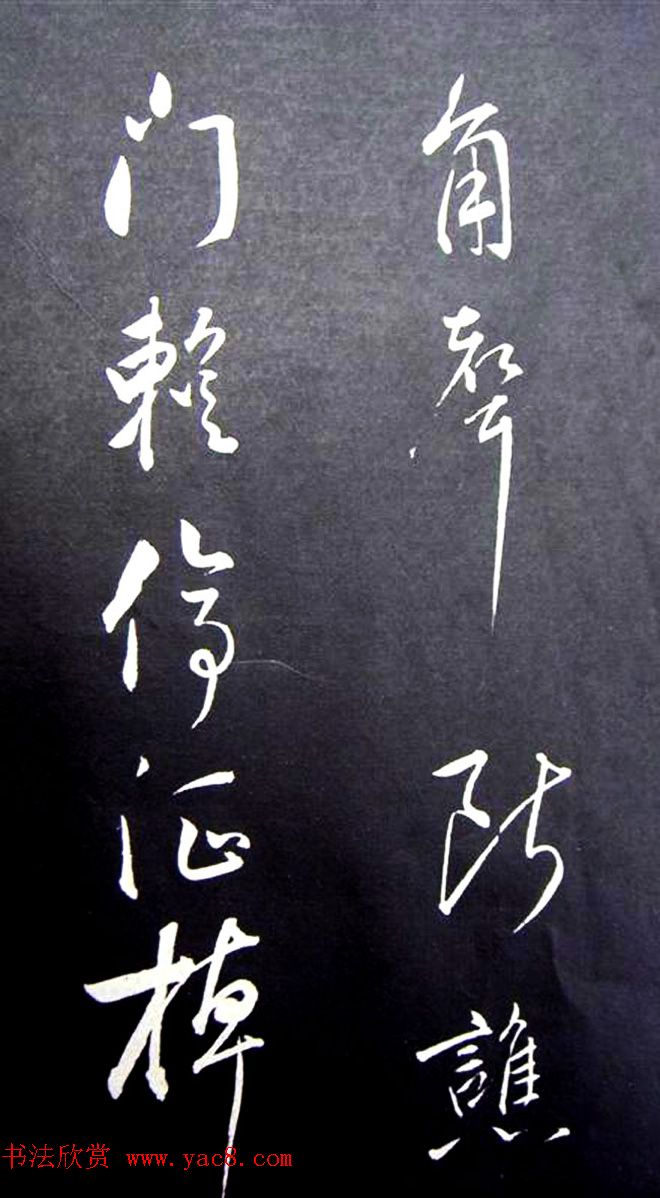 角聲斷譙
門暫停征棹
书法欣赏 www.yac8.com